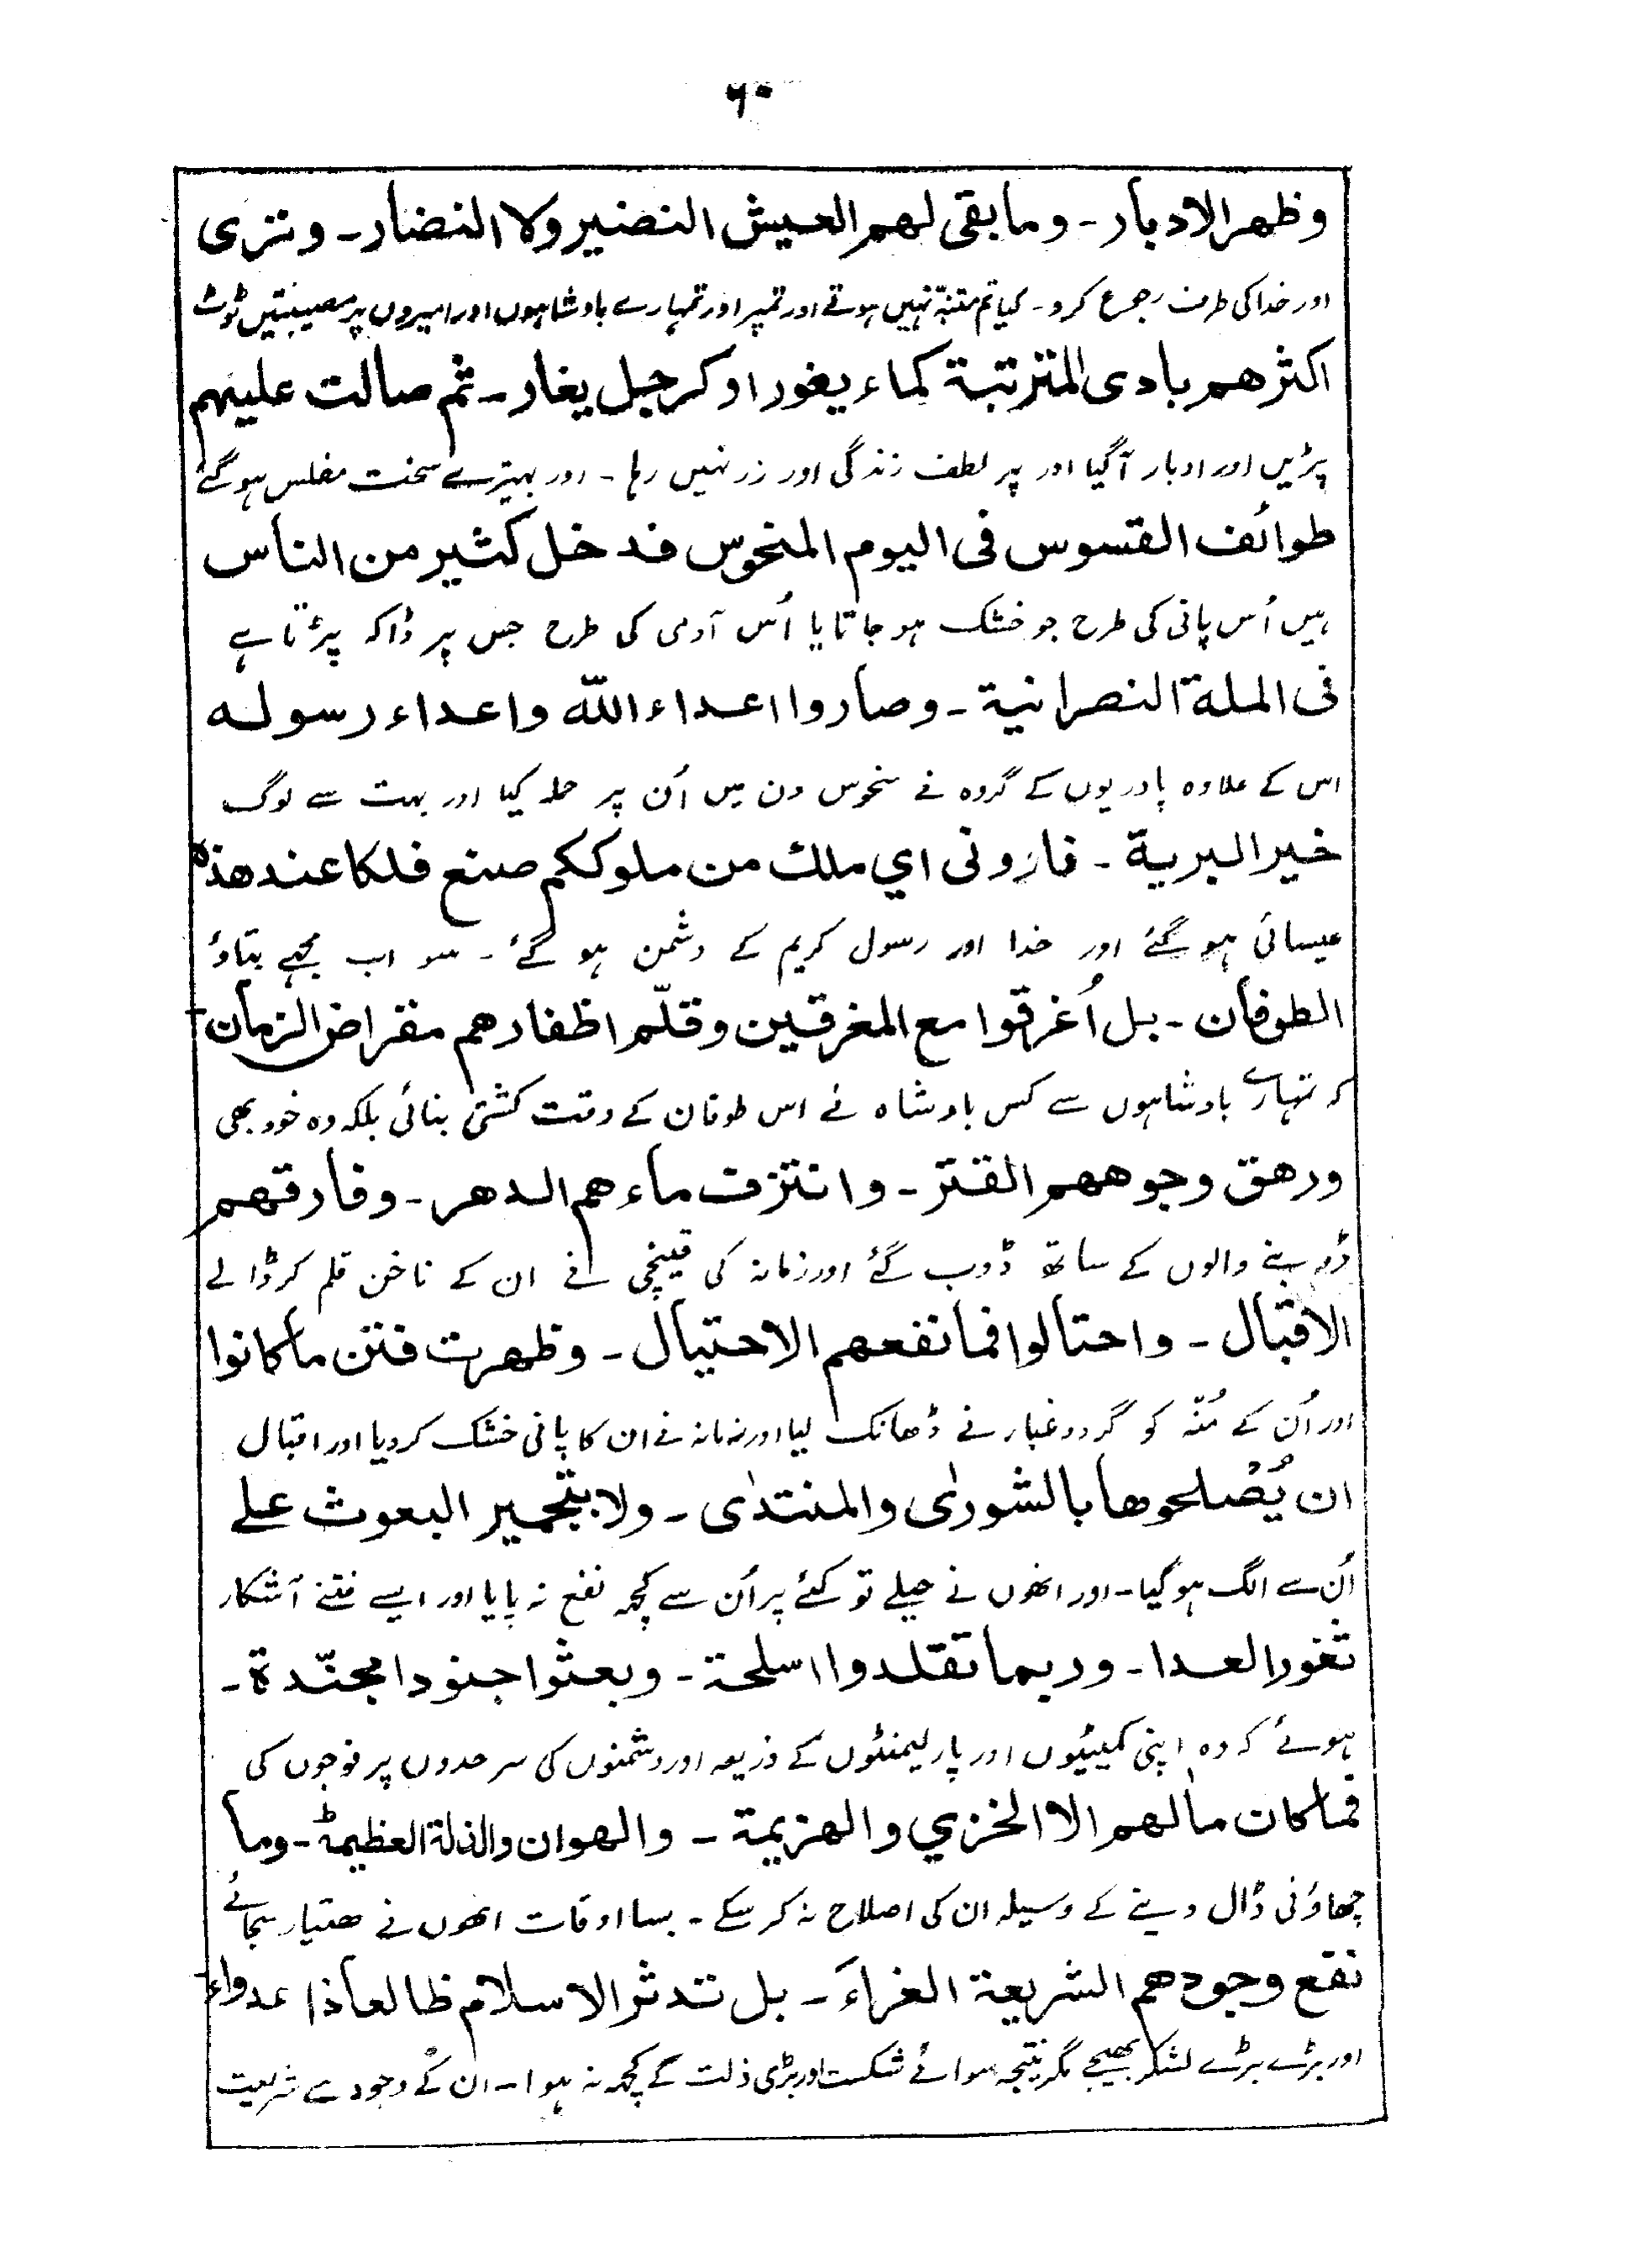 ۶۰
وظهر الادبار ـ وما بقى لهم العيش النضير ولا النضار ـ وترى
اور خدا کی طرف رجوع کرو ـ کیا تم متنبّہ نہیں ہوتے اور تمپر اور تمہارے بادشاہوں اور امیروں پر مصیبتیں ٹوٹ
اكثرهم بادى المتربة كماء يغور او كرجل يغار ـ ثم صالت عليهم
پڑیں اور ادبار آگیا اور پر لطف زندگی اور زر نہیں رہا ـ اور بہتیرے سخت مفلس ہوگئے
طوائف القسوس فى اليوم المنحوس فدخل كثير من الناس
ہیں اُس پانی کی طرح جو خشک ہو جاتا یا اُس آدمی کی طرح جس پر ڈاکہ پڑتا ہے
فى الملة النصرانية ـ وصاروا اعداء الله واعداء رسوله
اس کے علاوہ پادریوں کے گروہ نے منحوس دن میں اُن پر حملہ کیا اور بہت سے لوگ
خير البرية ـ فاَرونى اي ملك من ملوككم صنع فلكا عند هذه
عیسائی ہو گئے اور خدا اور رسول کریم کے دشمن ہو گئے ـ سو اب مجھے بتاؤ
الطوفان ـ بل اُغرقوا مع المغرقين وقلّم اظفارهم مقراض الزمان ـ
کہ تمہارے بادشاہوں سے کس بادشاہ نے اس طوفان کے وقت کشتی بنائی بلکہ وہ خود بھی
ورهق وجوههم القتر ـ وانتزف ماءهم الدهر ـ وفارقهم
ڈوبنے والوں کے ساتھ ڈوب گئے اور زمانہ کی قینچی نے ان کے ناخن قلم کر ڈالے
الاقبال ـ واحتالوا فما نفعهم الاحتيال ـ وظهرت فتن ما كانوا
اور اُن کے مُنّہ کو گرد و غبار نے ڈھانک لیا اور زمانہ نے ان کا پانی خشک کر دیا اور اقبال
ان يُصْلحوها بالشورىٰ والمنتدىٰ ـ ولا بتجمير البعوث على
اُن سے الگ ہو گیا ـ اور انھوں نے حیلے تو کئے پر اُن سے کچھ نفع نہ پایا اور ایسے فتنے آشکار
ثغور العدا ـ وربما تقلدوا اسلحة ـ وبعثوا جنودا مجنّدة ـ
ہوئے کہ وہ اپنی کمیٹیوں اور پارلیمنٹوں کے ذریعہ اور دشمنوں کی سرحدوں پر فوجوں کی
فما كان مآلهم الا الخزي والهزيمة ـ والهوان والذلة العظيمة ـ وما
چھاؤنی ڈال دینے کے وسیلہ ان کی اصلاح نہ کر سکے ـ بسا اوقات انھوں نے ھتیار سجائے
نفع وجودهم الشريعة الغراءَ ـ بل تدثر الاسلام ظالعا ذا عدواء ـ
اور بڑے بڑے لشکر بھیجے مگر نتیجہ سوائے شکست اور بڑی ذلت کے کچھ نہ ہوا ـ ان کے وجود سے شریعت